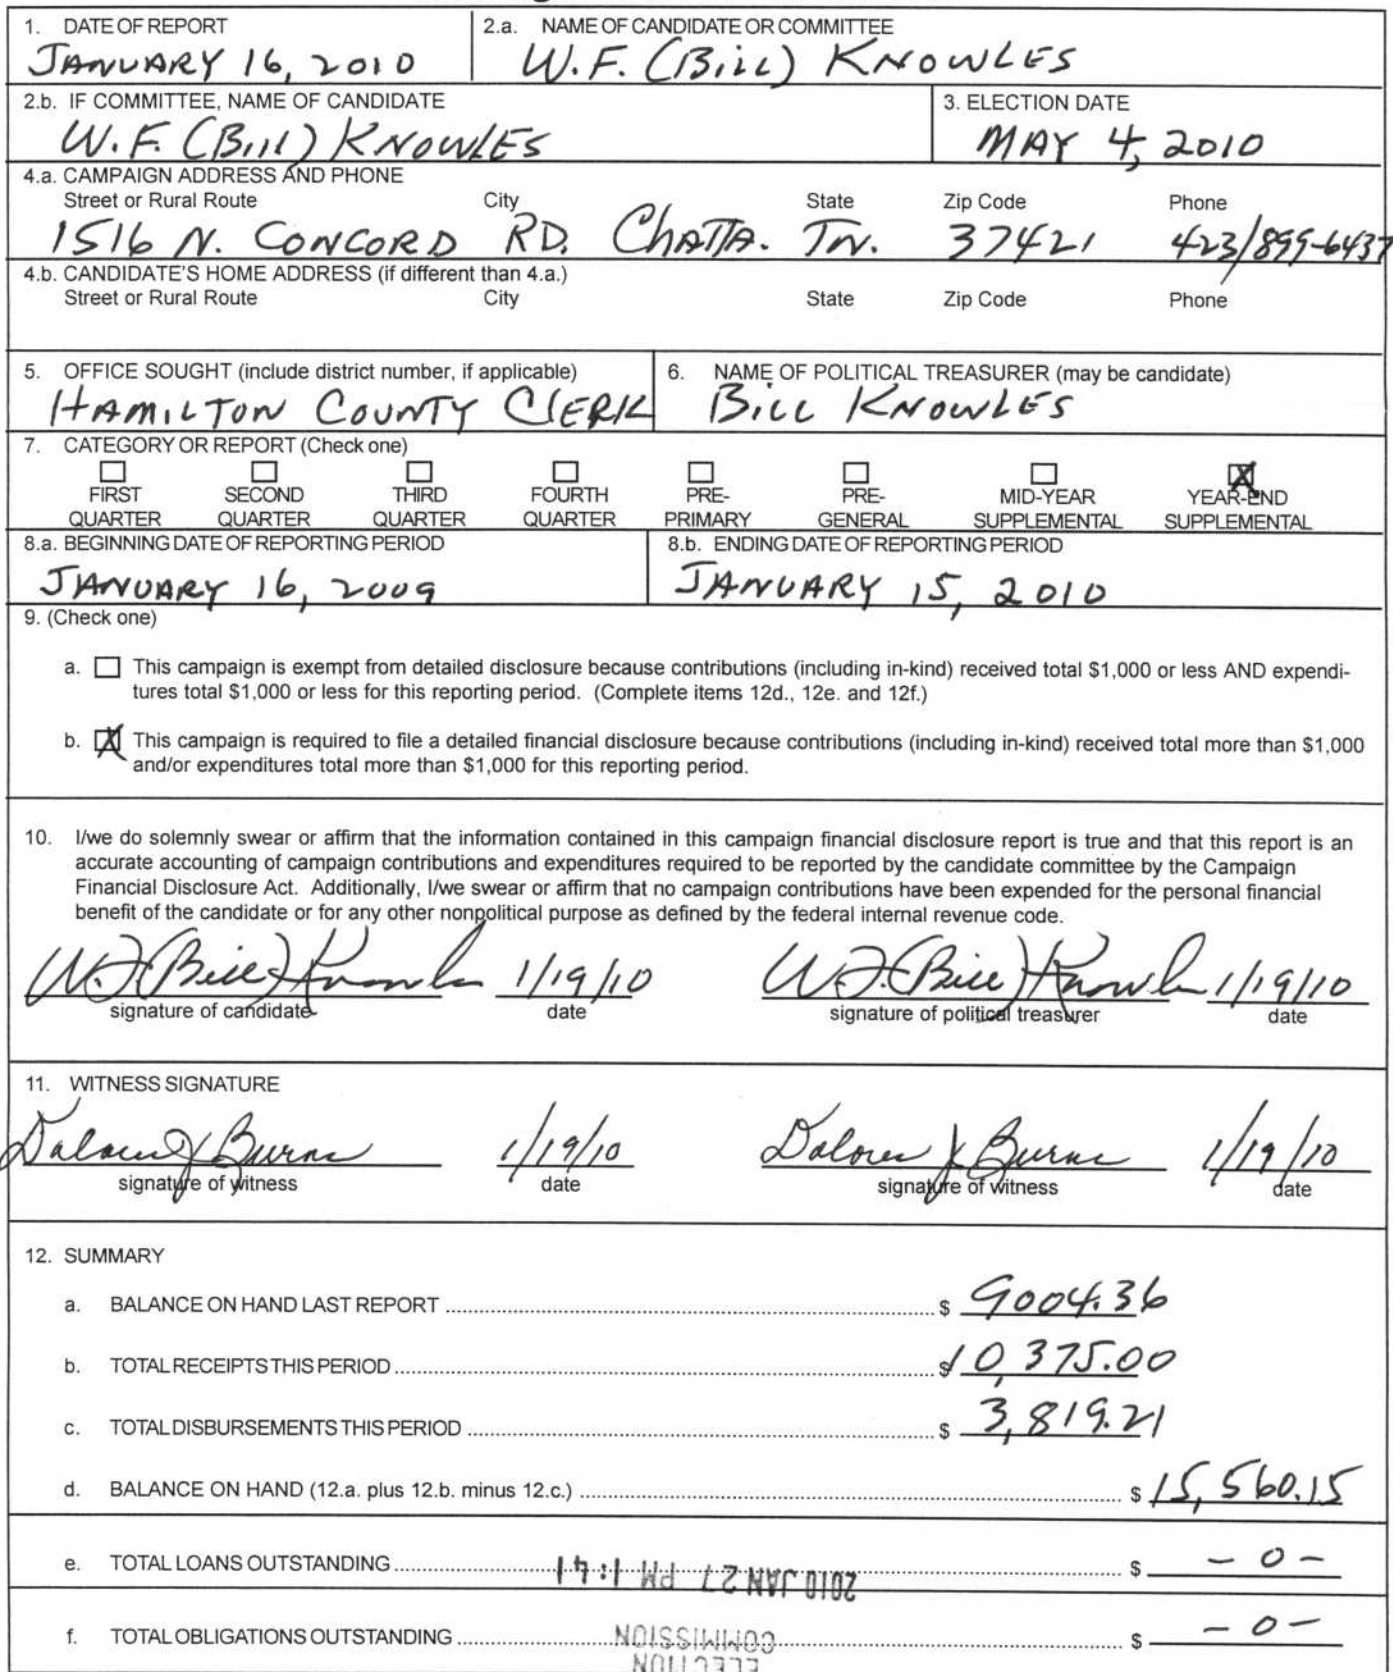 1. DATE OF REPORT
JANUARY 16, 2010
2.a. NAME OF CANDIDATE OR COMMITTEE
W.F. (Bill) KNOWLES
2.b. IF COMMITTEE, NAME OF CANDIDATE
W.F. (Bill) KNOWLES
3. ELECTION DATE
MAY 4, 2010
4.a. CAMPAIGN ADDRESS AND PHONE
Street or Rural Route City State Zip Code Phone
1516 N. CONCORD RD. ChATTA. TN. 37421 423/899-6437
4.b. CANDIDATE'S HOME ADDRESS (if different than 4.a.)
Street or Rural Route City State Zip Code Phone
5. OFFICE SOUGHT (include district number, if applicable)
HAMILTON COUNTY ClERK
6. NAME OF POLITICAL TREASURER (may be candidate)
BILL KNOWLES
7. CATEGORY OR REPORT (Check one)
FIRST QUARTER
SECOND QUARTER
THIRD QUARTER
FOURTH QUARTER
PRE-PRIMARY
PRE-GENERAL
MID-YEAR SUPPLEMENTAL
X YEAR-END SUPPLEMENTAL
8.a. BEGINNING DATE OF REPORTING PERIOD
JANUARY 16, 2009
8.b. ENDING DATE OF REPORTING PERIOD
JANUARY 15, 2010
9. (Check one)
a. This campaign is exempt from detailed disclosure because contributions (including in-kind) received total $1,000 or less AND expendi-
tures total $1,000 or less for this reporting period. (Complete items 12d., 12e. and 12f.)
b. X This campaign is required to file a detailed financial disclosure because contributions (including in-kind) received total more than $1,000
and/or expenditures total more than $1,000 for this reporting period.
10. I/we do solemnly swear or affirm that the information contained in this campaign financial disclosure report is true and that this report is an
accurate accounting of campaign contributions and expenditures required to be reported by the candidate committee by the Campaign
Financial Disclosure Act. Additionally, I/we swear or affirm that no campaign contributions have been expended for the personal financial
benefit of the candidate or for any other nonpolitical purpose as defined by the federal internal revenue code.
W.F. (Bill) Knowles 1/19/10 W.F. (Bill) Knowles 1/19/10
signature of candidate date signature of political treasurer date
11. WITNESS SIGNATURE
Dolores J Burns 1/19/10 Dolores J Burns 1/19/10
signature of witness date signature of witness date
12. SUMMARY
a. BALANCE ON HAND LAST REPORT $ 9004.36
b. TOTAL RECEIPTS THIS PERIOD $ 10,375.00
c. TOTAL DISBURSEMENTS THIS PERIOD $ 3,819.21
d. BALANCE ON HAND (12.a. plus 12.b. minus 12.c.) $ 15,560.15
e. TOTAL LOANS OUTSTANDING $ - 0 -
2010 JAN 27 PM 1:41
f. TOTAL OBLIGATIONS OUTSTANDING $ - 0 -
COMMISSION
ELECTION